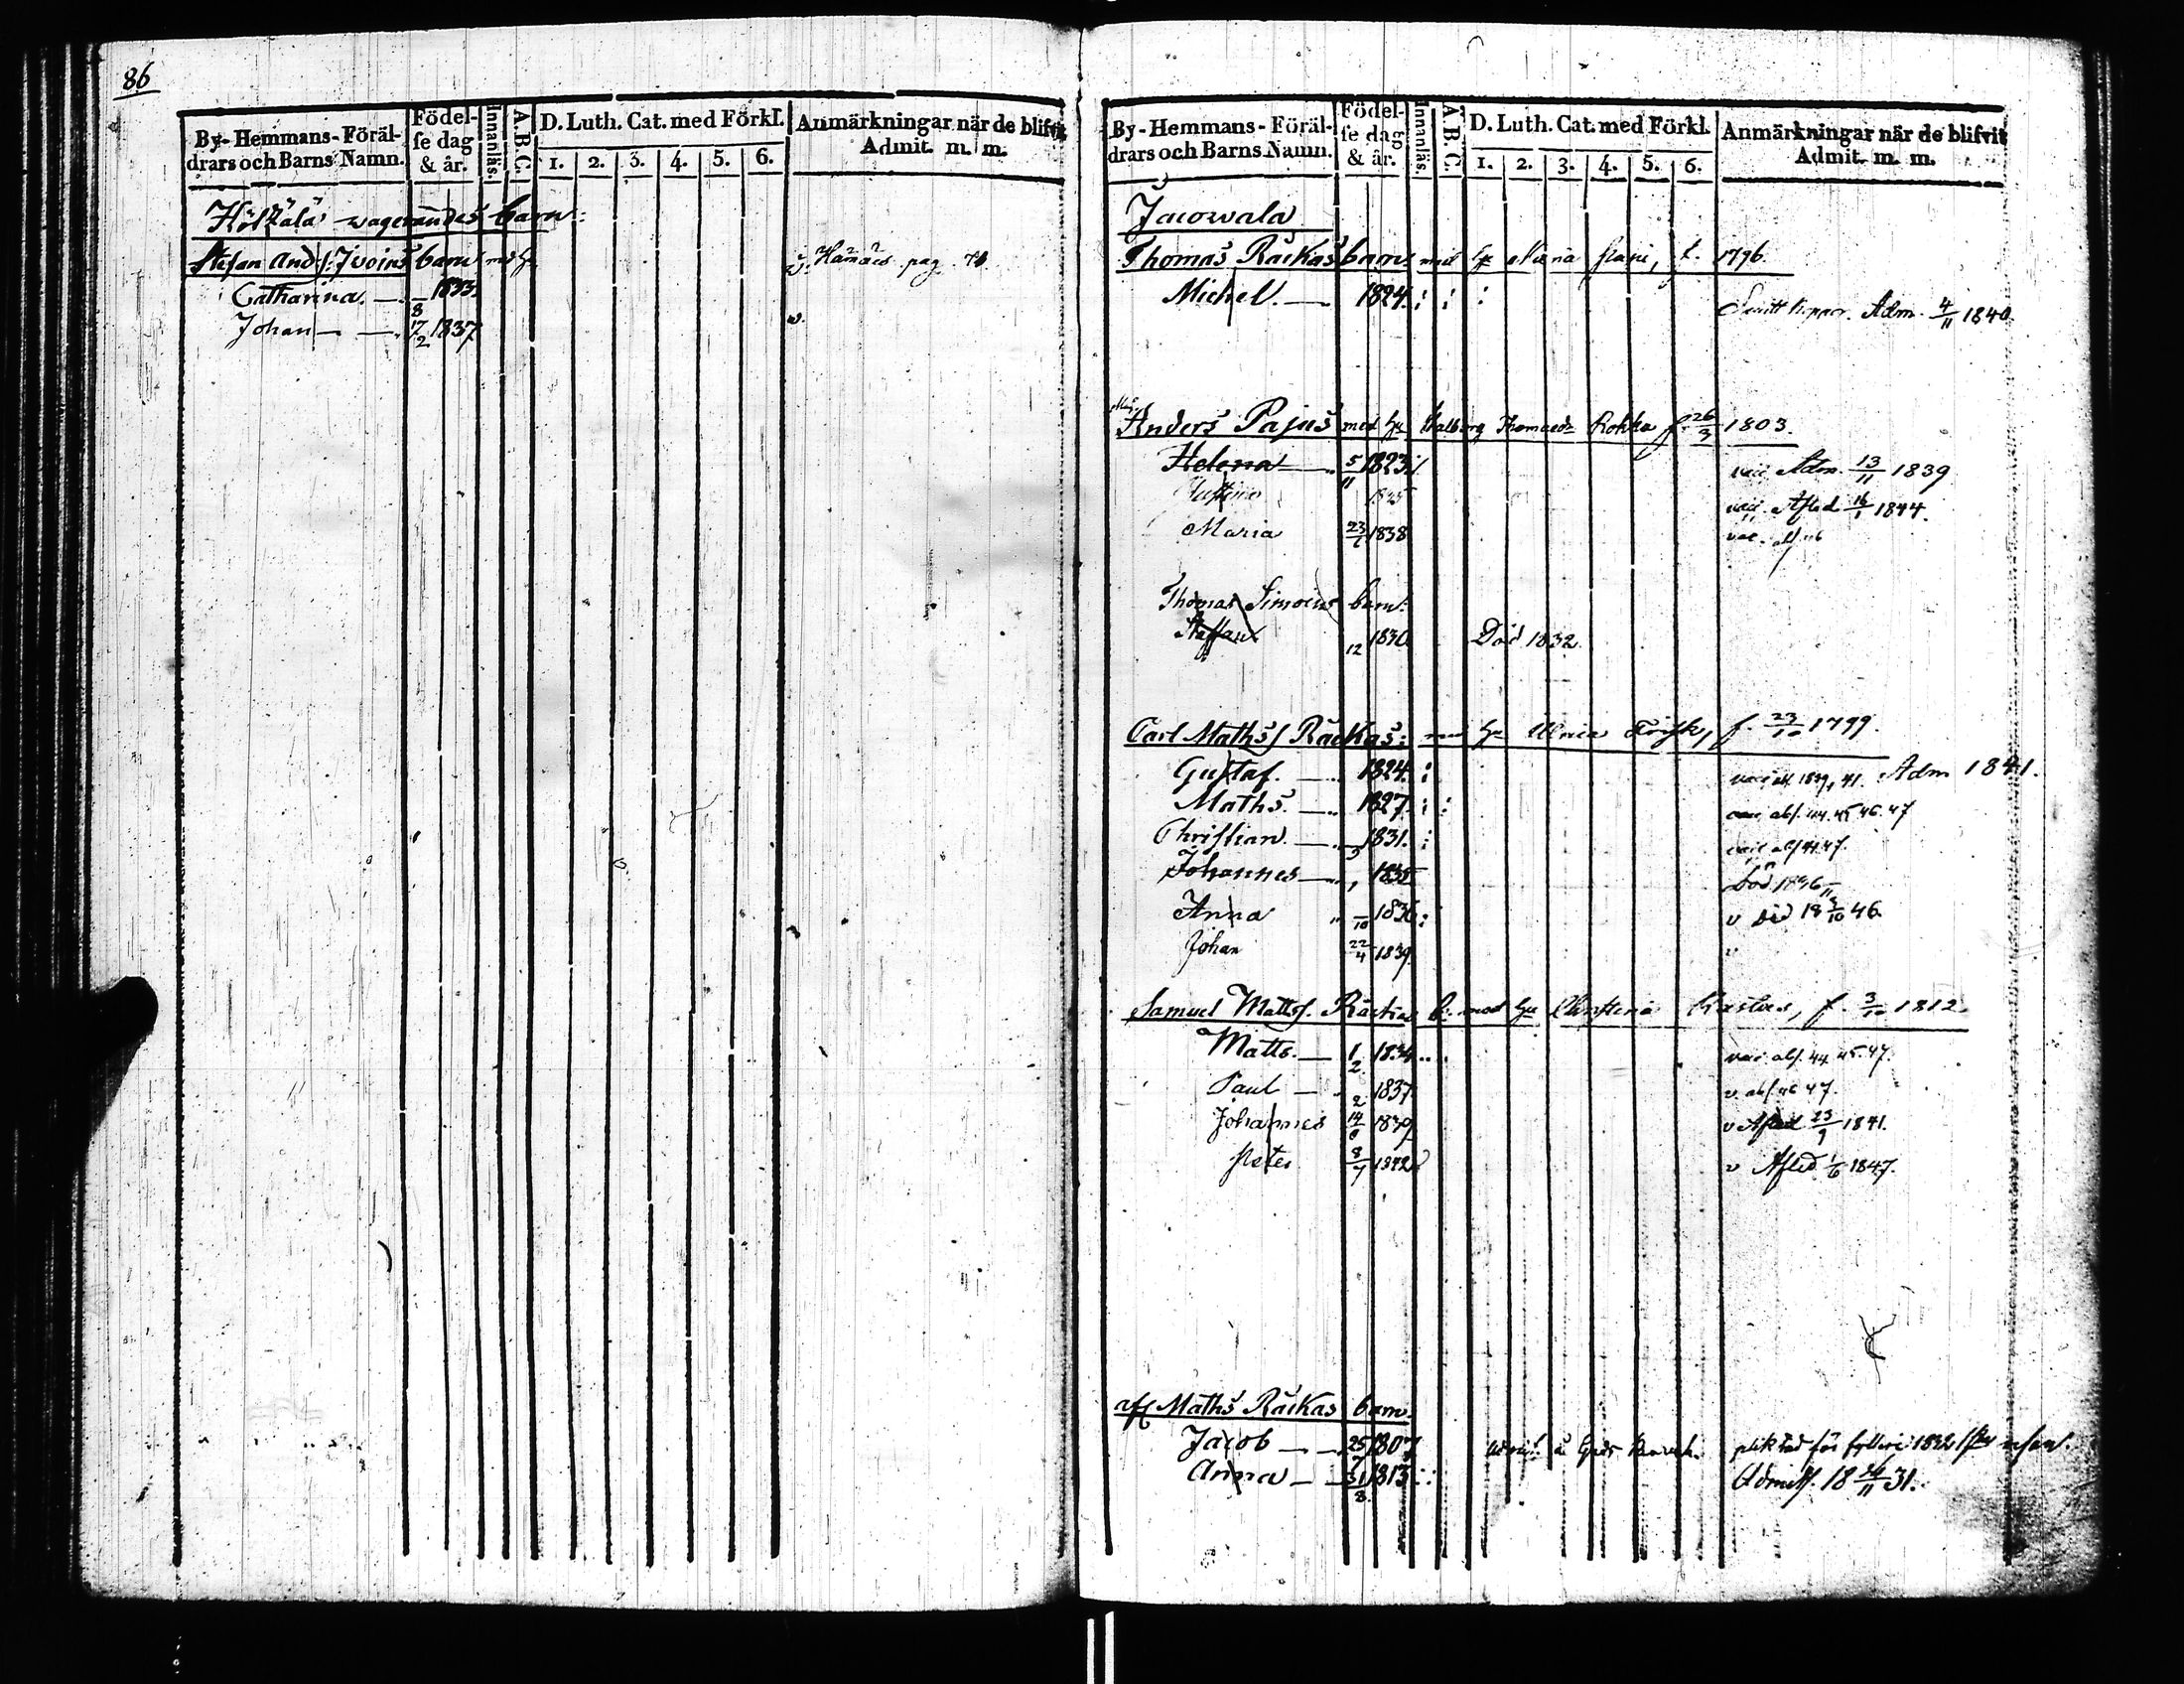 86
By-Hemmans-Föräl-drars och Barns Namn. Födel-se dag & år. Innanläs. A.B.C. D. Luth. Cat. med Förkl. 1. 2. 3. 4. 5. 6. Anmärkningar när de blifvit Admit. m. m.
Hölkälä wagerandes barn:
Stefan Ands: Ivoins barn
v. Hamäes pag. 71.
Catharina — 8 1833.
Johan — 17/2 1837
v.
By-Hemmans-Föräl-drars och Barns Namn. Födel-se dag & år. Innanläs. A.B.C. D. Luth. Cat. med Förkl. 1. 2. 3. 4. 5. 6. Anmärkningar när de blifvit Admit. m. m.
Jacowala
Thomas Räikas barn med hu f. 1796.
Michel. — 1824. Adm. 4/11 1840.
Anders Pajus med hu Walborg Thomaed. Rokka f. 26/3 1803.
Helena — 5/11 1823 vac Adm. 13/11 1839
1825 vac. Afled 16/1 1844.
Maria 23/6 1838 vac. abs. 46
Thomas Simoins barn:
Staffan 12 1830. Död 1832.
Carl Maths/ Räikas: med hu Ulrica f. 23/10 1799.
Gustaf. — 1824. vac abs. 1839, 41. Adm 1841.
Maths. — 1827. vac. abs. 44. 45 46. 47
Christian. — 1831. vac abs 44 47.
Johannes — 1835 död 1836
Anna 10 1836 v död 18 3/10 46.
Johan 22/4 1839. v
Samuel Matts/. Räikas b. med hu Christina f. 3/10 1812.
Matts. — 1/2 1834 vac. abs. 44. 45. 47.
Paul — 2 1837 v. abs. 46 47.
Johannes 14/8 1839 v Afled 23/9 1841.
Peter 8/7 1842 v Afled. 1/6 1847.
afl Maths Räikas barn.
Jacob — 25/7 1807 pliktad för fylleri 1832
Anna — 31/8 1813. Admitt. 18 26/11 31.